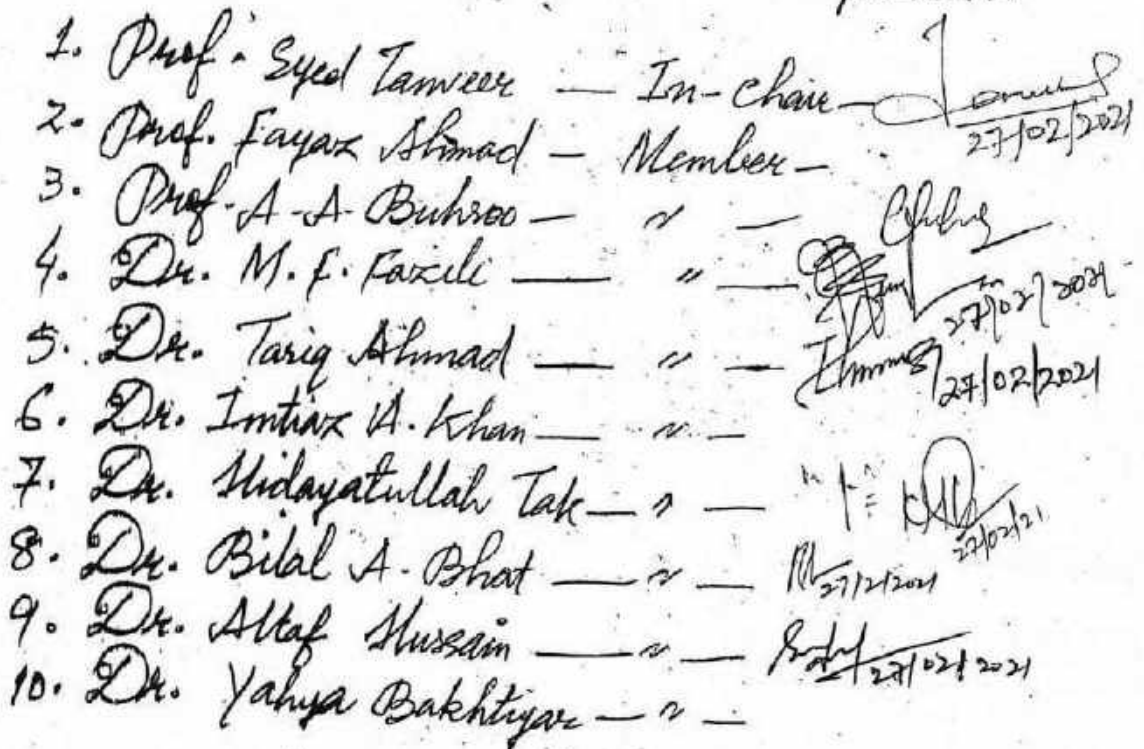 1. Prof. Syed Tanveer — In-Chair —
27/02/2021
2. Prof. Fayaz Ahmad — Member —
3. Prof. A-A-Buhroo — " —
4. Dr. M. F. Fazili — " —
27/02/2021
5. Dr. Tariq Ahmad — " —
27/02/2021
6. Dr. Imtiaz A. Khan — " —
7. Dr. Hidayatullah Tak — " —
27/02/21
8. Dr. Bilal A. Bhat — " — 27/2/2021
9. Dr. Altaf Hussain — " — 27/02/2021
10. Dr. Yahya Bakhtiyar — " —